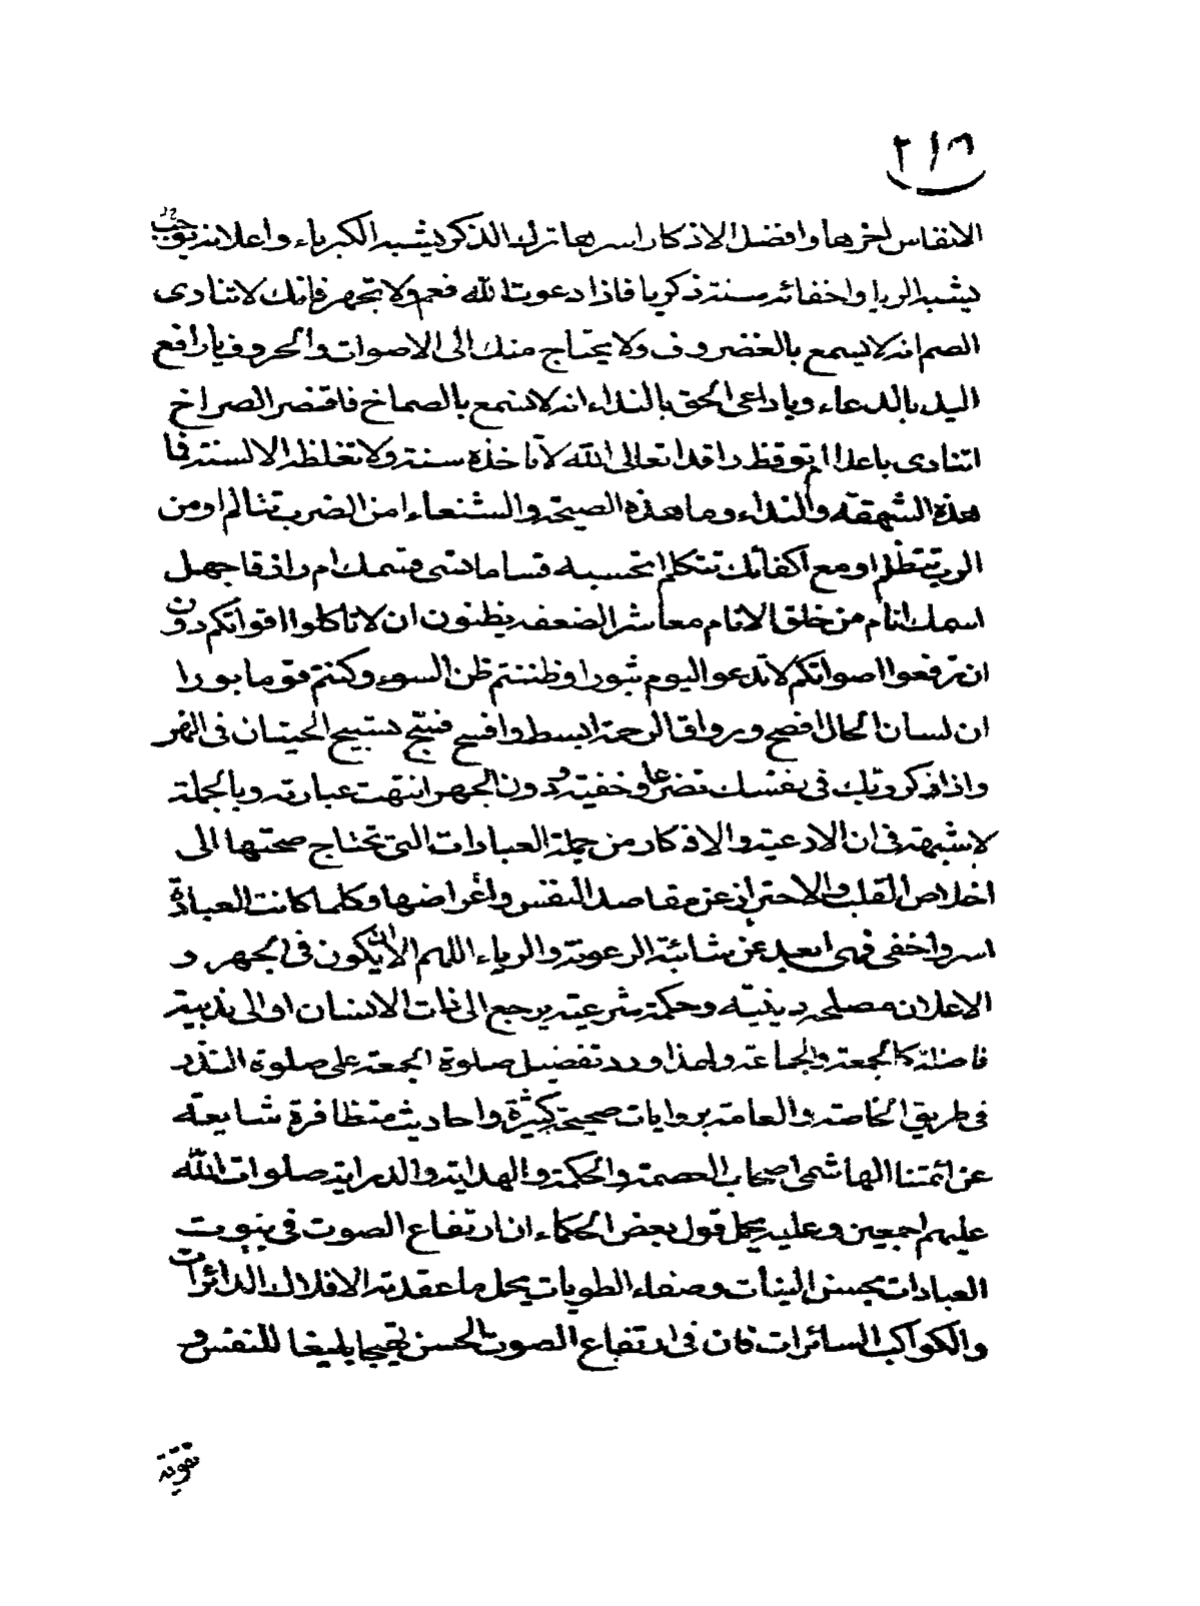 ٢١٦
الانفاس اخرها وافضل الاذكار اسرها ترك الذكر يشبه الكبرياء واعلانه يوجب
يشبه الريا واخفائه سنة زكريا فاذا دعوت الله فعم ولا تجهر فانك لا تنادى
الصم انه لا يسمع بالغضروف ولا يحتاج منك الى الاصوات والحروف يا رافع
اليد بالدعاء ويا داعى الحق بالنداء انه لا يسمع بالصماخ فاقتصر الصراخ
اتنادى باعدا ام توقظ راقدا تعالى الله لا تاخذه سنة ولا تغلظه الالسنة فما
هذه الشهقة والنداء وما هذه الصيحة والشنعاء امن الضرب تتالم او من
الرب تتظلم او مع اكفائك تتكلم اتحسبه قساما نسى قسمك ام رازقا جهل
اسمك انام من خلق الانام معاشر الضعفه يظنون ان لا تاكلوا اقواتكم دون
ان ترفعوا اصواتكم لا تدعوا اليوم ثبورا وظننتم ظن السوء وكنتم قوما بورا
ان لسان الحال افصح ورواق الرحمة ابسط وافسح فسبح تسبيح الحيتان فى النهر
واذا ذكر ربك فى نفسك تضرعا وخفية ودون الجهر انتهت عبارته وبالجملة
لا شبهة فى ان الادعية والاذكار من جملة العبادات التى تحتاج صحتها الى
اخلاص القلب والاحتراز عن مقاصد النفس واغراضها وكلما كانت العبادة
اسر واخفى فهى ابعد عن شائبة الرعونة والرياء اللهم الا ان يكون فى الجهر و
الاعلان مصلحة دينية وحكمة شرعية يرجع الى ذات الانسان او الى مدينة
فاضلة كالجمعة والجماعة ولهذا ورد تفضيل صلوة الجمعة على صلوة
فى طريق الخاصة والعامة بروايات صحيحة كثيرة واحاديث متظافرة شايعة
عن ائمتنا الهاشمى اصحاب العصمة والحكمة والهداية والدراية صلوات الله
عليهم اجمعين وعليه يحمل قول بعض الحكماء ان ارتفاع الصوت فى بيوت
العبادات بحسن النيات وصفاء الطويات يحل ما عقدته الافلاك الدائرات
والكواكب السائرات فان فى ارتفاع الصوت الحسن تهييجا بليغا للنفس و
تقوية